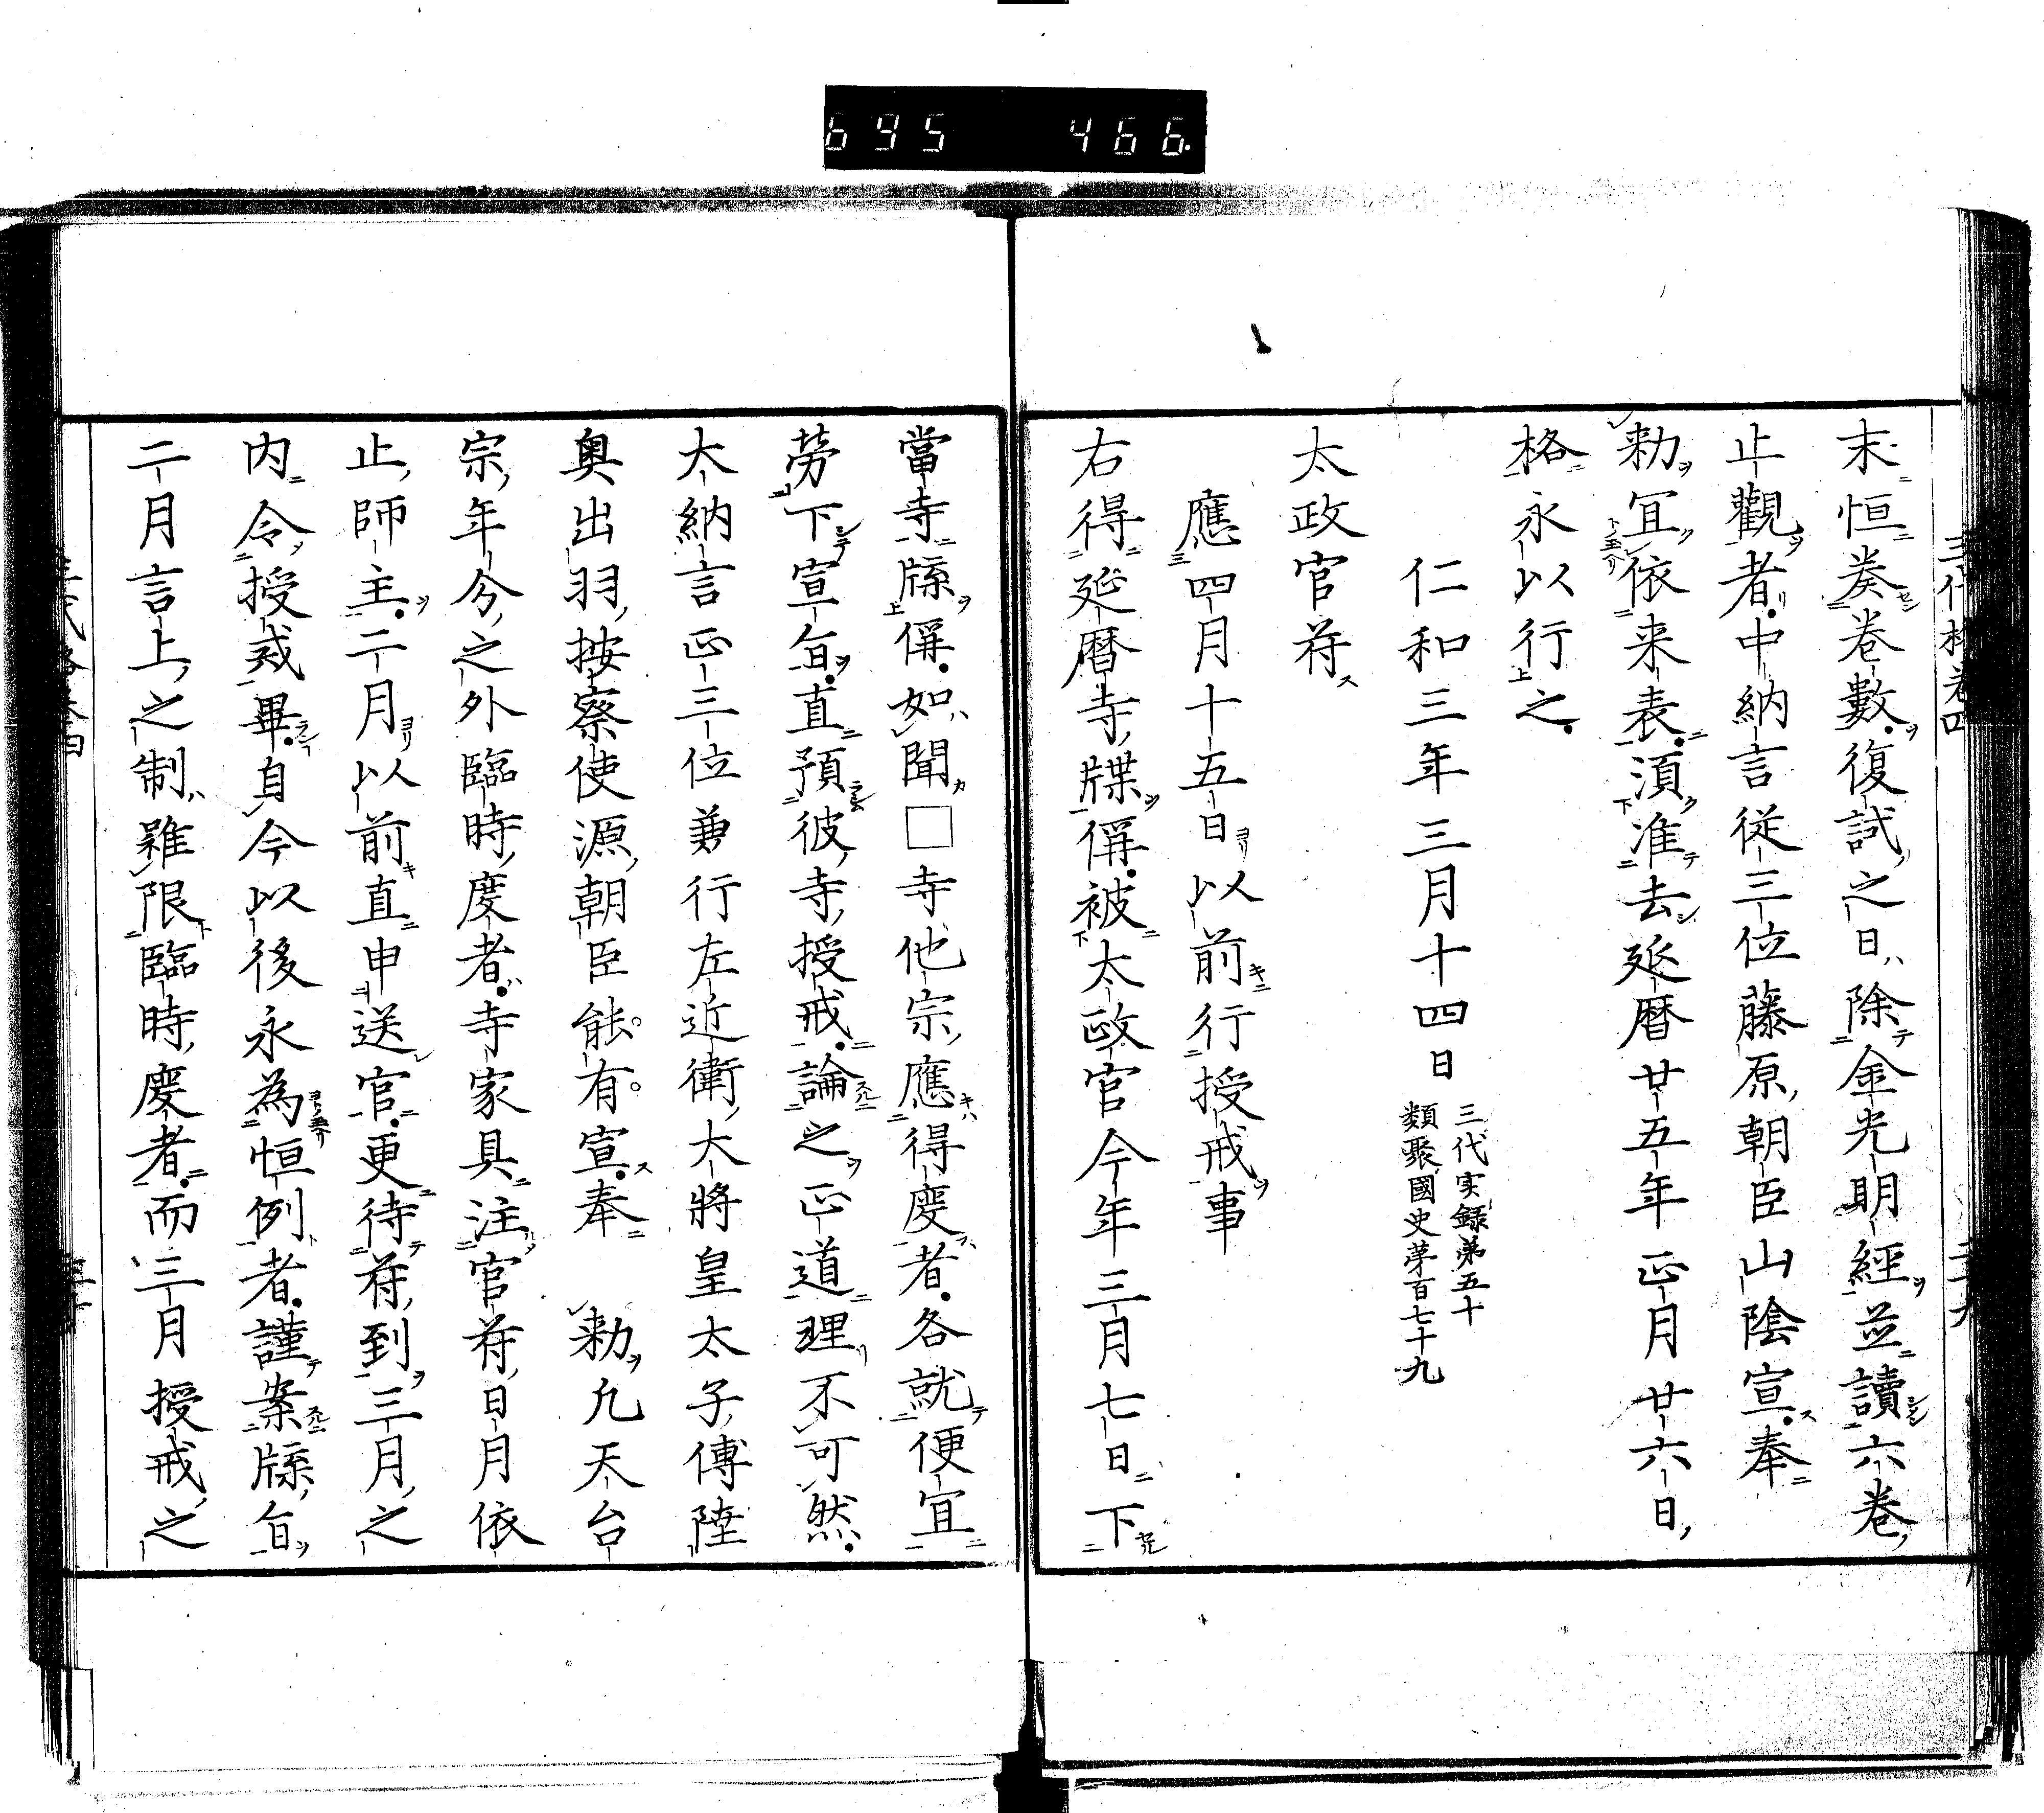 695 466
末恒奏卷數復試之日除金光明經並讀六卷
止觀者中納言従三位藤原朝臣山陰宣奉
勅宜依来表湏准去延暦廿五年正月廿六日
格永以行之
仁和三年三月十四日
三代実録第五十
類聚國史茅百七十九
太政官符
應四月十五日以前行授戒事
右得延暦寺牒偁被太政官今年三月七日下
當寺牒偁如聞□寺他宗應得度者各就便宜
勞下宣旨直預彼寺授戒論之正道理不可然
大納言正三位兼行左近衛大將皇太子傅陸
奥出羽按察使源朝臣能有宣奉 勅凢天台
宗年分之外臨時度者寺家具注官符日月依
止師主二月以前直申送官更待符到三月之
内令授戒畢自今以後永為恒例者謹案牒旨
二月言上之制雖限臨時度者而三月授戒之